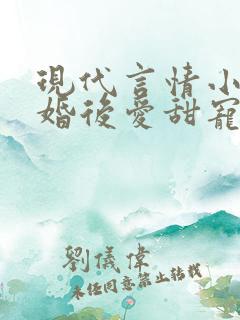 現代言情小
婚後愛甜寵
劉儀偉
未經同意禁止轉載